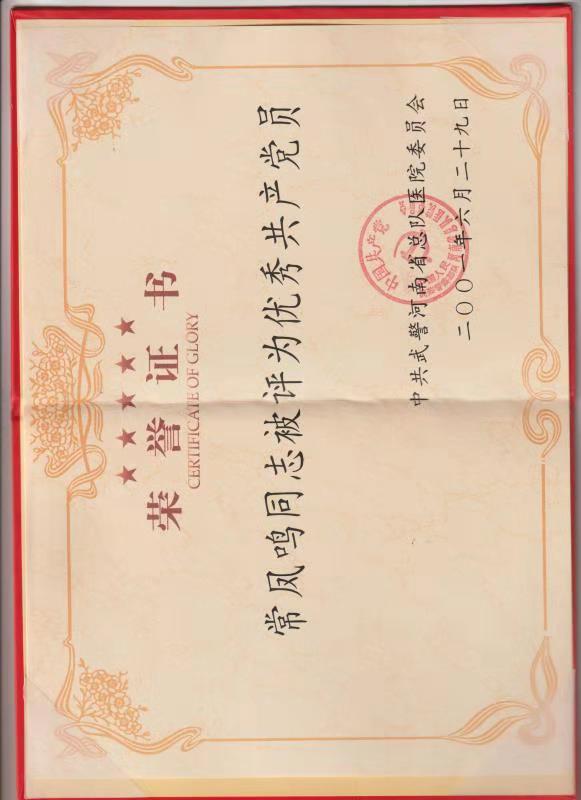 荣誉证书
CERTIFICATE OF GLORY
常凤鸣同志被评为优秀共产党员
中共武警河南省总队医院委员会
二〇〇一年六月二十九日
中国共产党